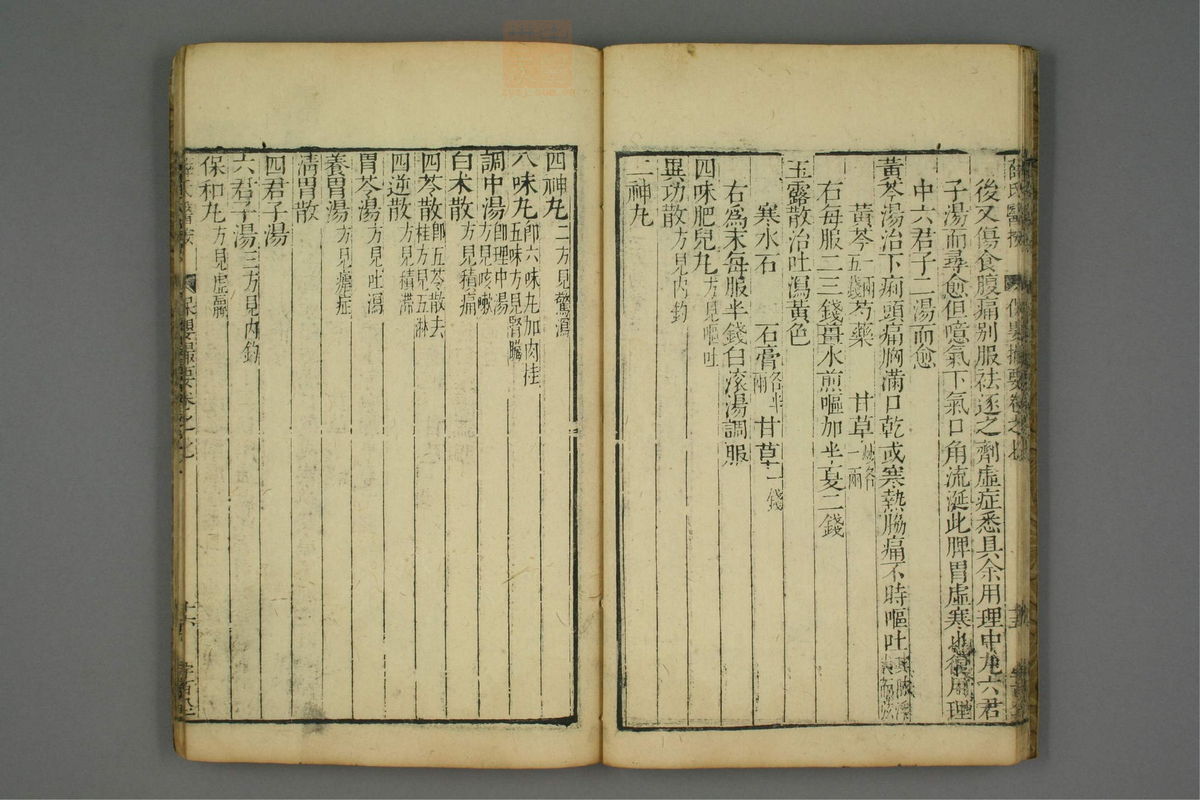 薛氏醫按 保嬰撮要卷之七
後又傷食腹痛別服祛逐之劑虛症悉具余用理中丸六君
子湯而尋愈但噫氣下氣口角流涎此脾胃虛寒也復用理
中六君子二湯而愈
黃芩湯治下痢頭痛胸滿口乾或寒熱脇痛不時嘔吐
黃芩一兩五錢 芍藥 甘草炒各一兩
右每服二三錢薑水煎嘔加半夏二錢
玉露散治吐瀉黃色
寒水石 石膏各半兩 甘草一錢
右爲末每服半錢白滾湯調服
四味肥兒丸方見嘔吐
異功散方見內釣
二神丸
四神丸二方見驚瀉
八味丸即六味丸加肉桂五味方見腎臟
調中湯即理中湯方見咳嗽
白朮散方見積痛
四苓散即五苓散去桂方見五淋
四逆散方見積滯
胃苓湯方見吐瀉
養胃湯方見瘧症
清胃散
四君子湯
六君子湯三方見內釣
保和丸方見虛羸
薛氏醫按 保嬰撮要卷之七